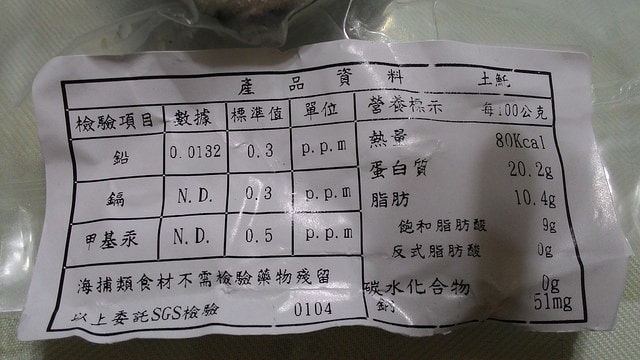 產品資料 土魠
檢驗項目 數據 標準值 單位 營養標示 每100公克
鉛 0.0132 0.3 p.p.m 熱量 80Kcal
蛋白質 20.2g
鎘 N.D. 0.3 p.p.m 脂肪 10.4g
飽和脂肪酸 9g
甲基汞 N.D. 0.5 p.p.m 反式脂肪酸 0g
海捕類食材不需檢驗藥物殘留 碳水化合物 0g
以上委託SGS檢驗 0104 鈉 51mg